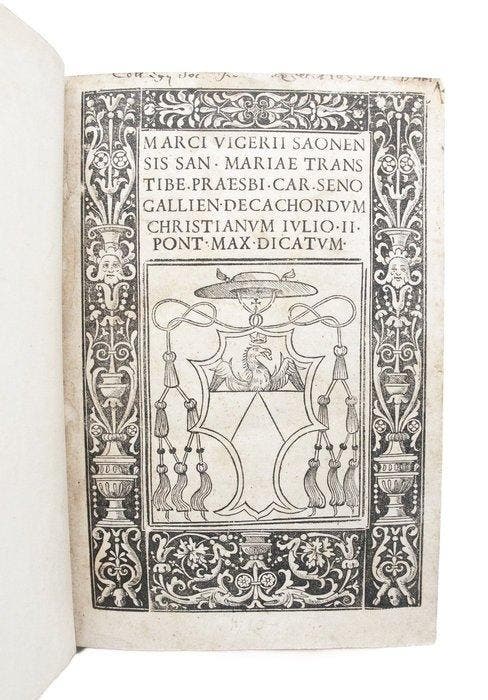 MARCI VIGERII SAONEN
SIS SAN · MARIAE TRANS
TIBE · PRAESBI · CAR · SENO
GALLIEN · DECACHORDVM
CHRISTIANVM IVLIO · II ·
PONT · MAX · DICATVM ·